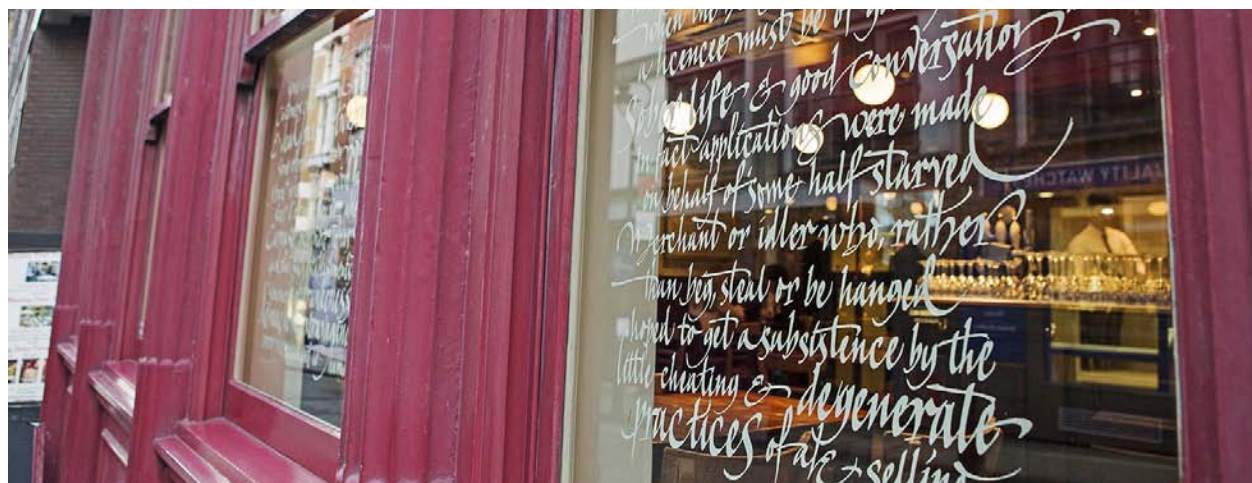 when the
a licencee must be of
Sober life & good Conversation
in fact applications were made
on behalf of some half starved
Merchant or idler who, rather
than beg, steal or be hanged
hoped to get a subsistence by the
little cheating & degenerate
practices of ale selling
UALITY WATCHE